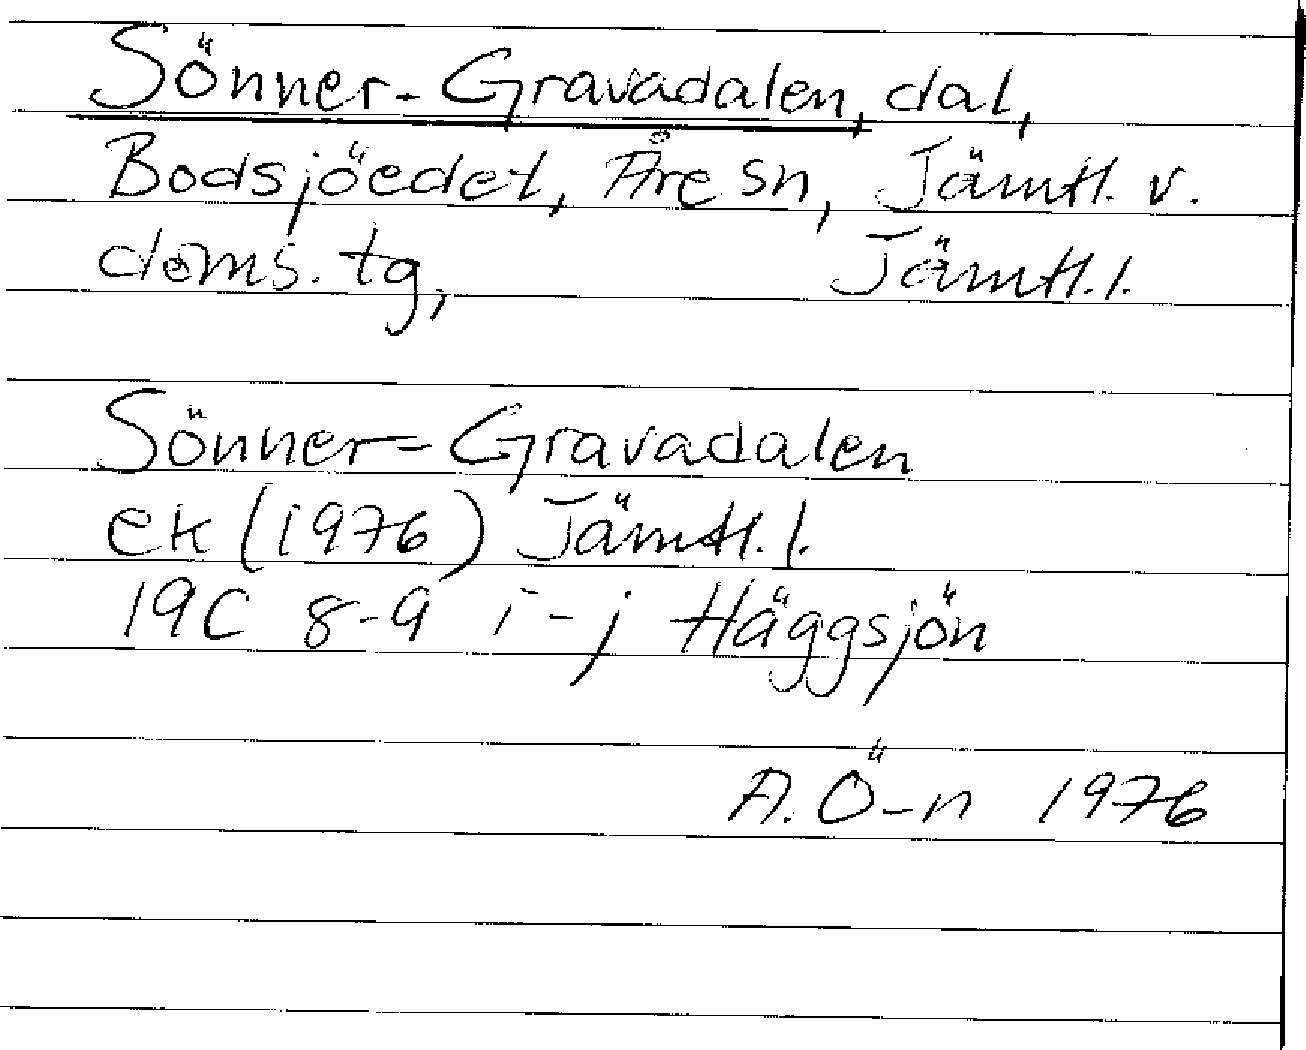 Sönner-Gravadalen, dal,
Bodsjöedet, Åre sn, Jämtl. v.
doms. tg, Jämtl. l.
Sönner-Gravadalen
ek (1976) Jämtl. l.
19C 8-9 i-j Häggsjön
A. Ö-n 1976